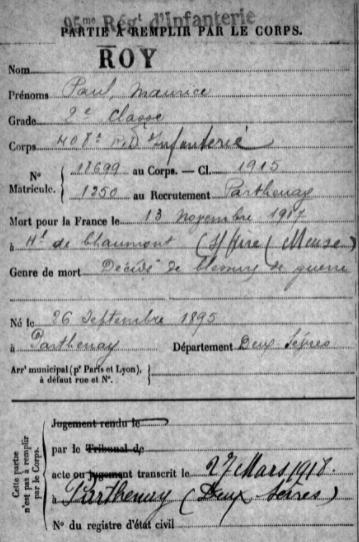 95me Régt d'infanterie
PARTIE À REMPLIR PAR LE CORPS.
Nom ROY
Prénoms Paul, Maurice
Grade 2e Classe
Corps 408e Rt d'Infanterie
N° Matricule. { 11699 au Corps. — Cl. 1915
1250 au Recrutement Parthenay
Mort pour la France le 13 Novembre 1917
à Hl de Chaumont (s/ Aire (Meuse)
Genre de mort Décédé de blessures de guerre
Né le 26 Septembre 1895
à Parthenay Département Deux-Sèvres
Arrt municipal (pr Paris et Lyon),
à défaut rue et N°.
Cette partie n'est pas à remplir par le Corps.
Jugement rendu le
par le Tribunal de
acte ou jugement transcrit le 27 Mars 1918
à Parthenay (Deux Sèvres)
N° du registre d'état civil